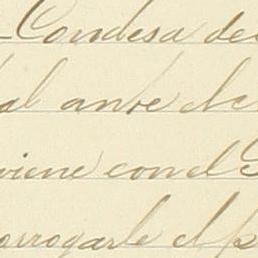 Condesa de
al ante el
viene con el
arrogarle el p